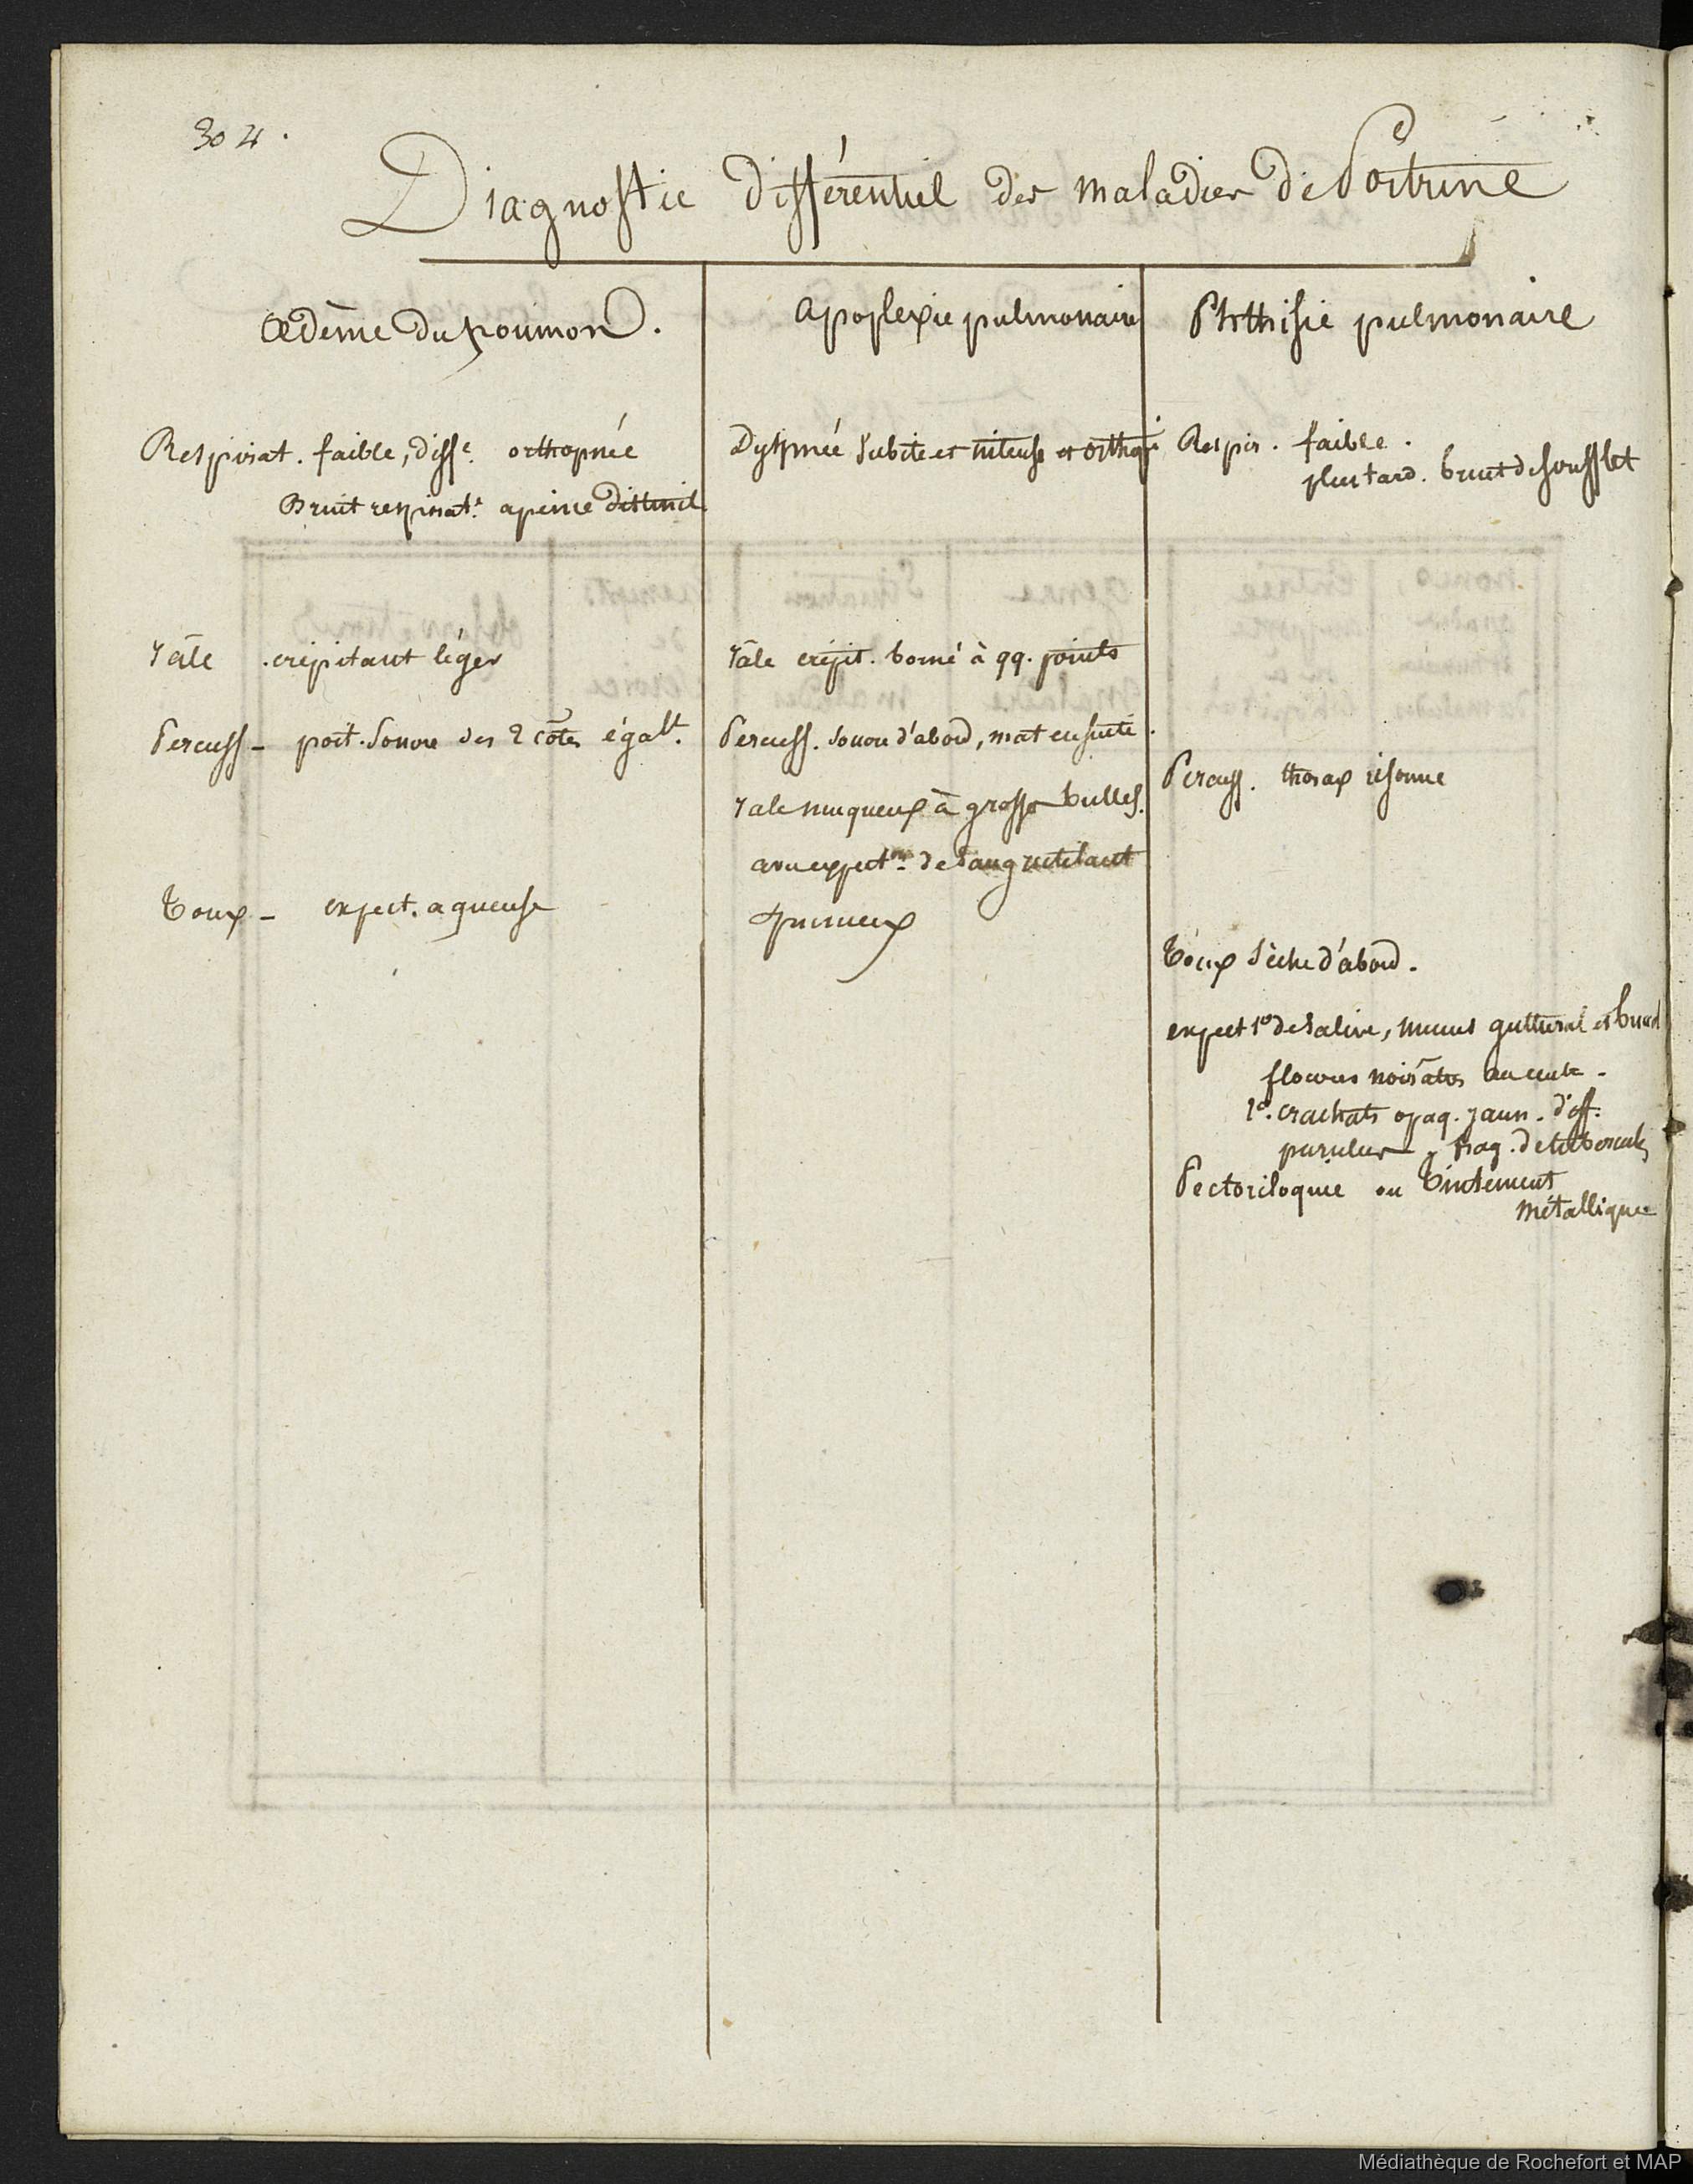 304.
Diagnostic différentiel des maladies de Poitrine
Œdème du poumon.
Respirat. faible, diffe. orthopnée
Bruit respirat. a peine distinct.
râle crépitant léger
Percuss - poit. Sonore des 2 côtés égalt.
Toux - expect. aqueuse
apoplexie pulmonaire
Dyspnée Subite et intense et orthop
râle crépit. borné à qq. points
Percuss. Sonore d'abord, mat ensuite.
rale muqueux à grosse bulles.
avec expecton de Sang rutilant
Spumeux
Phthisie pulmonaire
Respir. faible.
plus tard. bruit de soufflet
Percuss. thorax résonne
Toux Sèche d'abord.
expect 1º de Salive, mucus guttural et
flocons noirâtres au centre.
crachats opaq. jaun. diff.
purulens, frag. de tubercule
Pectoriloquie ou Tintement
métallique
Médiathèque de Rochefort et MAP